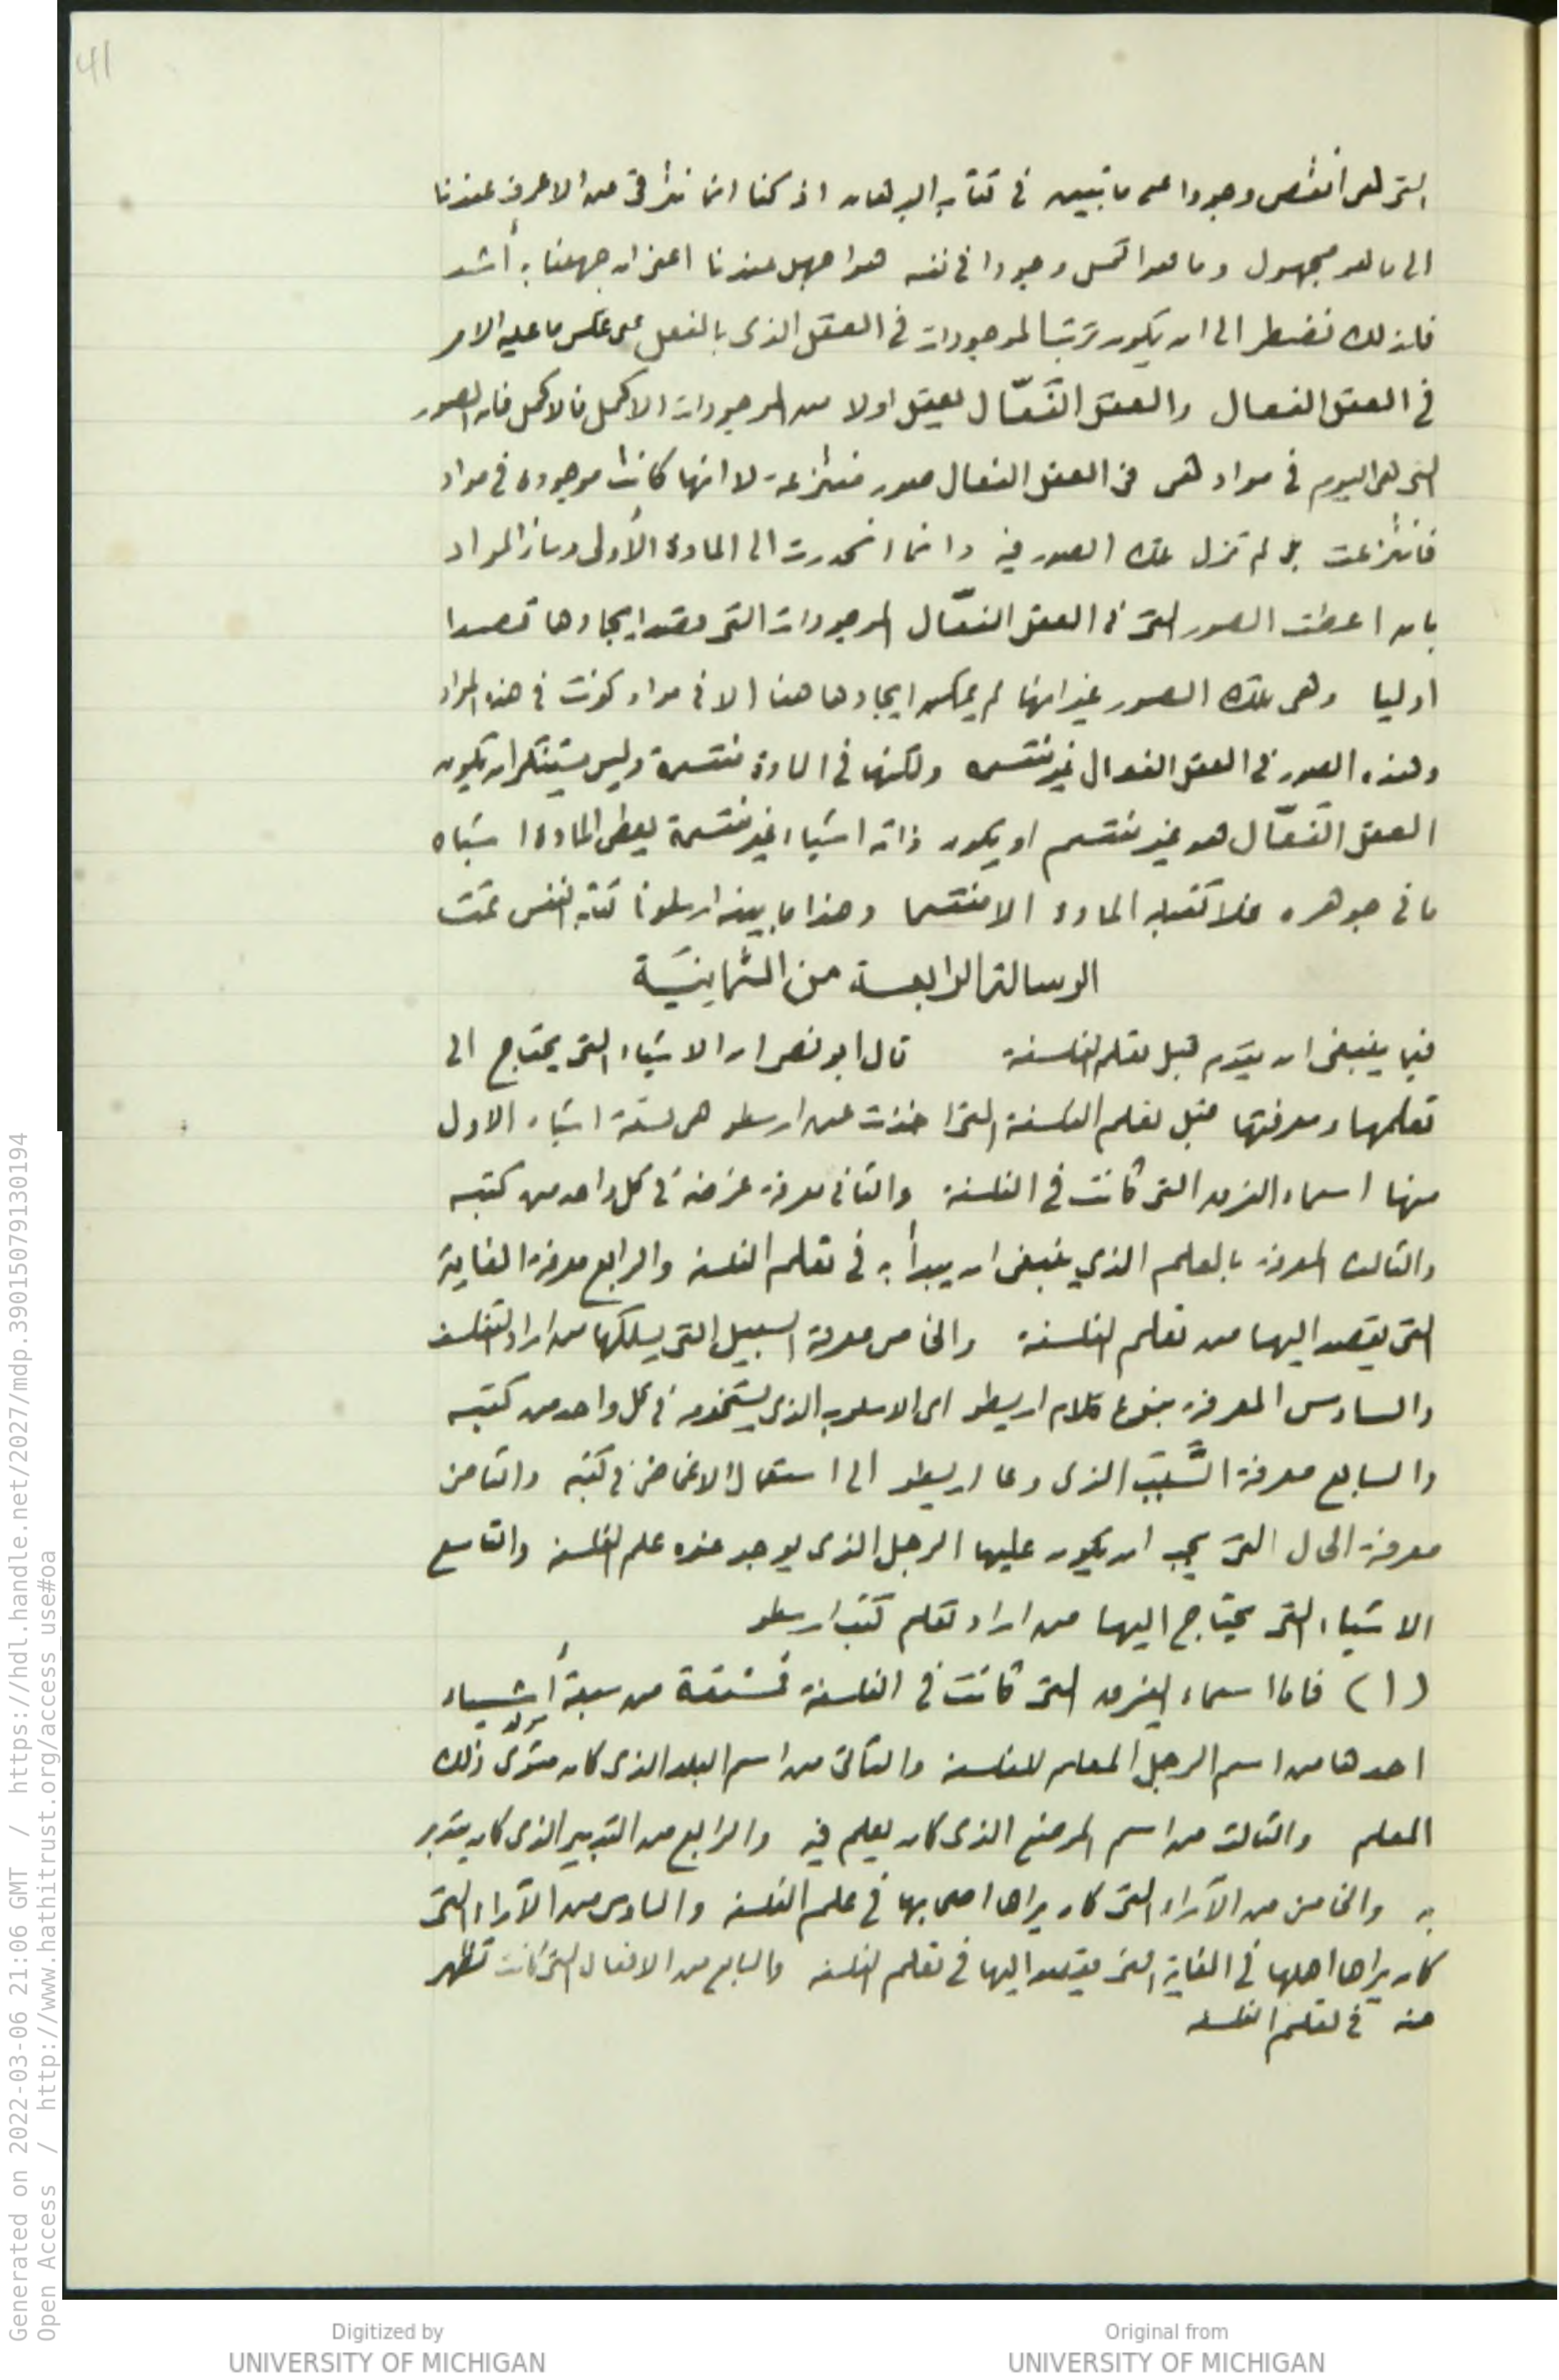 41
التى هى انقص وجودا على ما تبين فى كتاب البرهان اذ كنا انما نترقى من الاعرف عندنا
الى ما هو مجهول وما هو اكمل وجودا فى نفسه هو اجهل عندنا اعنى ان جهلنا به أشد
فلذلك نضطر الى ان يكون ترتيب الموجودات فى العقل الذى بالفعل على عكس ما عليه الامر
فى العقل الفعال والعقل الفعّال يعقل اولا من الموجودات الاكمل فالاكمل فان الصور
التى هى اليوم فى مواد هى فى العقل الفعال صور منتزعة لا انها كانت موجودة فى مواد
فانتزعت بل لم تزل تلك الصور فيه وانما انحدرت الى المادة الأولى وسائر المواد
بان اعطت الصور التى فى العقل الفعّال الموجودات التى قصد ايجادها قصدا
اوليا وهى تلك الصور غير انها لم يمكن ايجادها هنا الا فى مواد كونت فى هذه المواد
وهذه الصور فى العقل الفعال غير منقسمه ولكنها فى المادة منقسمة وليس يستنكر ان يكون
العقل الفعّال هو غير منقسم او يكون ذاته اشياء غير منقسمة يعطى المادة اشباه
ما فى جوهره فلا تقبله المادة الا منقسما وهذا ما بينه ارسطو فى كتابه النفس تمت
الرسالة الرابعة من الثمانيّة
فيما ينبغى ان يقدم قبل تعلم الفلسفة قال ابو نصر ان الاشياء التى يحتاج الى
تعلمها ومعرفتها قبل تعلم الفلسفة التى اخذت عن ارسطو هى تسعة اشياء الاول
منها اسماء الفرق التى كانت فى الفلسفة والثانى معرفة غرضه فى كل واحد من كتبه
والثالث المعرفة بالعلم الذي ينبغى ان يبدأ به فى تعلم الفلسفة والرابع معرفة الغاية
التى يقصد اليها من تعلم الفلسفة والخامس معرفة السبيل التى يسلكها من اراد الفلسفة
والسادس المعرفة بنوع كلام اريسطو اى الاسلوب الذى يستخدمه فى كل واحد من كتبه
والسابع معرفة السَّبب الذى دعا اريسطو الى استعمال الاغماض فى كتبه والثامن
معرفة الحال التى يجب ان يكون عليها الرجل الذى يوجد عنده علم الفلسفة والتاسع
الاشياء التى يحتاج اليها من اراد تعلم كتب ارسطو
(١) فاما اسماء الفرق التى كانت فى الفلسفة فمشتقة من سبعة أشياء
احدها من اسم الرجل المعلم للفلسفة والثانى من اسم البلد الذى كان ذلك
المعلم والثالث من اسم الموضع الذى كان يعلم فيه والرابع من التدبير الذى كان يتدبر
به والخامس من الآراء التى كان يراها اصحابها فى علم الفلسفة والسادس من الآراء التى
كان يراها اهلها فى الغاية التى يقصد اليها فى تعلم الفلسفة والسابع من الافعال التى كانت تظهر
منه فى تعلم الفلسفه
Generated on 2022-03-06 21:06 GMT / https://hdl.handle.net/2027/mdp.39015079130194
Open Access / http://www.hathitrust.org/access_use#oa
Digitized by
UNIVERSITY OF MICHIGAN
Original from
UNIVERSITY OF MICHIGAN